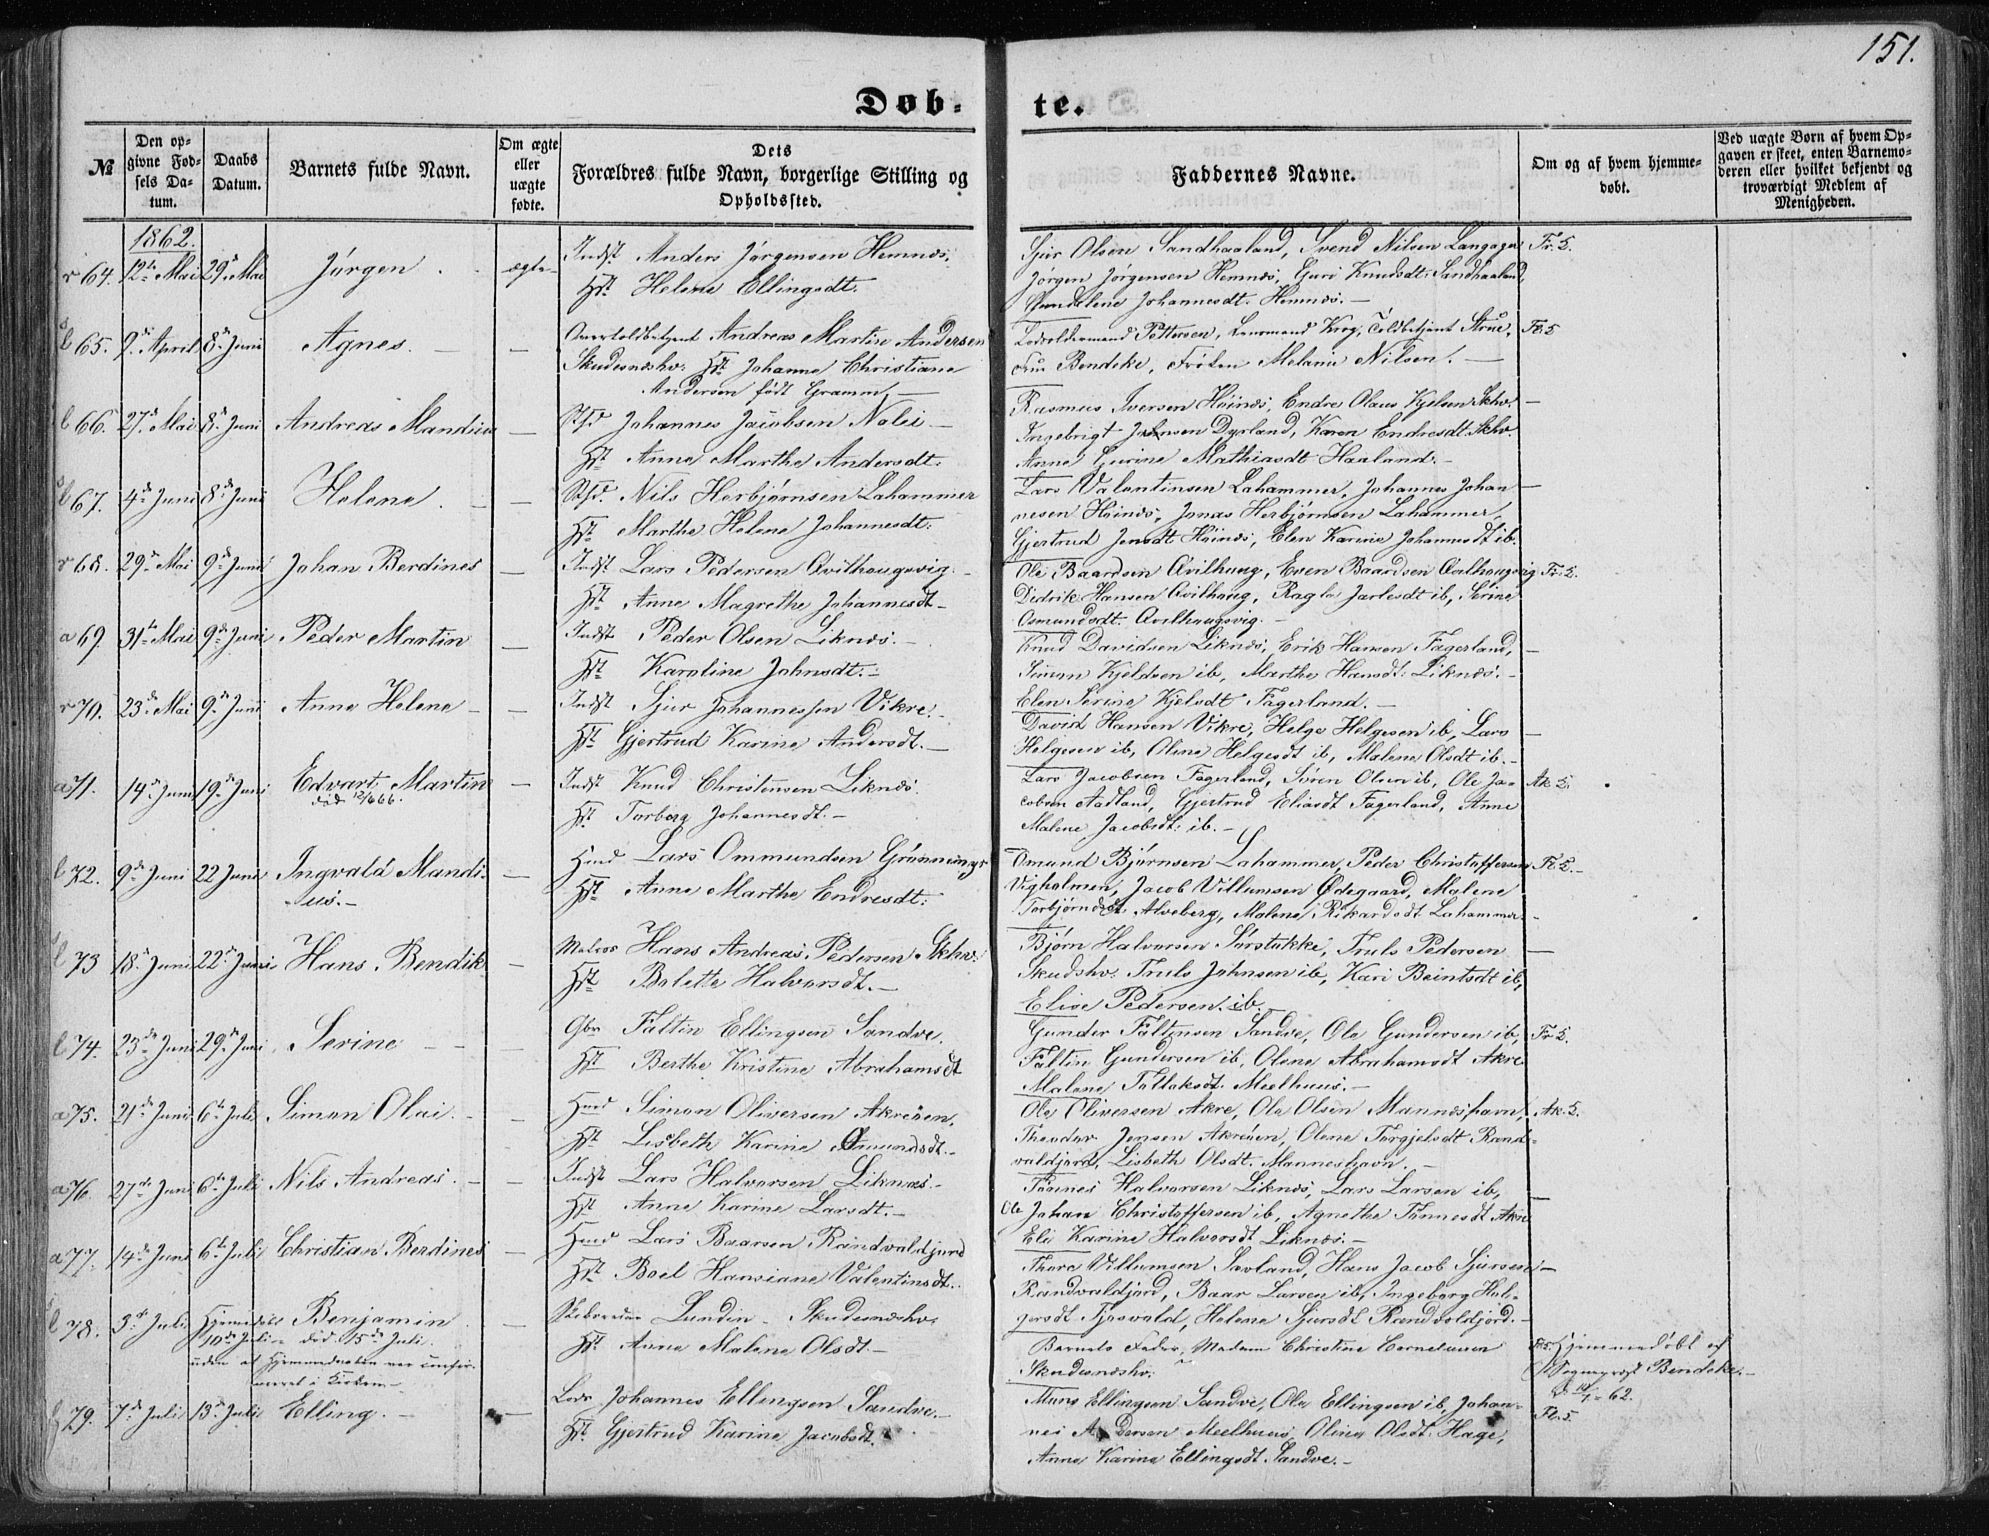 151.
Døb-
te.
№
Den op-
givne Fød-
sels Da-
tum.
Daabs
Datum.
Barnets fulde Navn.
Om ægte
eller
uægte
fødte.
Dets
Forældres fulde Navn, borgerlige Stilling og
Opholdssted.
Faddernes Navne.
Om og af hvem hjemme-
døbt.
Ved uægte Børn af hvem Op-
gaven er skeet, enten Barnemo-
deren eller hvilket bekjendt og
troværdigt Medlem af
Menigheden.
1862.
r 64. 12te Mai 29de Mai Jørgen. ægte
Indst Anders Jørgensen Hemnæs,
Hst Helene Ellingsdt.
Sjur Olsen Sandhaaland, Svend Nilsen Langager
Jørgen Jørgensen Hemnæs, Guri Knudsdt. Sandhaaland,
Johannesdt. Hemnæs.
65. 9de April 8de Juni Agnes. —
Overtoldbetjent Andreas Martin Andersen
Skudesneshv. Hst Johanne Christiane
Andersen født Gramm. —
Lodsoldermand Pettersen, Lensmand Krog, Toldbetjent
Fru Bendeke, Frøken Melanie Nilsen. —
66. 27de Mai 8de Juni Andreas Mandius —
Johannes Jacobsen Nolei —
Hst Anne Marthe Andersdt.
Rasmus Iversen Høines, Endre Olaus Kjelsen Skhv.
Ingebrigt Jensen Dyrland, Karen Endresdt. Skhv.
Anne Gurine Mathiasdt Haaland. —
67. 4de Juni 8de Juni Helene. —
Nils Herbjørnsen Lahammer
Hst Marthe Helene Johannesdt.
Lars Valentinsen Lahammer, Johannes Johan
nesen Høines, Jonas Herbjørnsen Lahammer,
Gjertrud Jensdt Høines, Elen Karine Johannesdt ib.
r 68. 29de Mai 9de Juni Johan Berdines —
Indst Lars Pedersen Qvilhougsvig.
Hst Anne Magrethe Johannesdt —
Ole Baardsen Qvilhaug, Even Baardsen Qvilhougsvig
Didrik Hansen Qvilhaug, Jarlesdt ib, Serine
Osmundsdt. Qvilhougsvig. —
a 69. 31te Mai 9de Juni Peder Martin —
Indst Peder Olsen Liknes.
Hst Karoline Johnsdt. —
Knud Davidsen Liknes, Erik Hansen Fagerland,
Simon Kjeldsen ib, Marthe Hansdt. Liknes. —
Elen Serine Kjelsdt Fagerland. —
r 70. 23de Mai 9de Juni Anne Helene —
Indst Sjur Johannessen Vikre. —
Hst Gjertrud Karine Andersdt. —
David Hansen Vikre, Helge Helgesen ib, Lars
Helgesen ib, Oline Helgesdt ib, Malene Olsdt ib. —
a 71. 14de Juni 19de Juni Edvart Martin —
død 12/6 66.
Indst Knud Christensen Liknes.
Hst Torborg Johannesdt. —
Lars Jacobsen Fagerland, Søren Olsen ib, Ole Ja-
cobsen Aadland, Gjertrud Eliasdt Fagerland, Anne
Malene Jacobsdt. ib. —
72. 9de Juni 22 Juni Ingvald Mandi- —
us. —
Hmd Lars Ommundsen Grønning
Hst Anne Marthe Endresdt.
Omund Bjørnsen Lahammer, Peder Christoffersen
Vigholmen, Jacob Villumsen Ødegaard, Malene
Torbjørnsdt Alveberg, Malene Rikardsdt Lahammer. —
73 18de Juni 22de Juni Hans Bendik —
Matros Hans Andreas Pedersen Skhv.
Hst Bolette Halvorsdt. —
Bjørn Halvorsen Sørstokke, Truls Pedersen
Skudshv. Truls Johnsen ib, Kari Beintsdt ib,
Elise Pedersen ib.
74. 23de Juni 29de Juni Serine —
Gbr Faltin Ellingsen Sandve.
Hst Berthe Kristine Abrahamsdt
Gunder Faltinsen Sandve, Ole Gundersen ib,
Faltin Gundersen ib, Olene Abrahamsdt Akre
Malene Meelhuus. —
a 75. 21de Juni 6te Juli Simon Olai. —
Hmd Simon Oliversen Akreøen,
Hst Lisbeth Karine Omundsdt. —
Ole Oliversen Akre, Ole Olsen Manneshavn,
Theodor Jensen Akreøen, Olene Torgjelsdt Rand-
valdjord, Lisbeth Olsdt. Manneshavn. —
a 76. 27de Juni 6te Juli Nils Andreas. —
Indst Lars Halvorsen Liknes. —
Hst Anne Karine Larsdt. —
Tønnes Halvorsen Liknes, Lars Larsen ib,
Ole Johan Christoffersen ib, Agnethe Tønnesdt Akre
Eli Karine Halvorsdt Liknes. —
a 77. 14de Juni 6te Juli Christian Berdines —
Hmd Lars Baarsen Randvaldjord
Hst Boel Hansiane Valentinsdt. —
Thore Villumsen Savland, Hans Jacob Sjursen
Randvaldjord, Baar Larsen ib, Ingeborg Hol-
gersdt Tjosvold, Helene Sjursdt Randvoldjord. —
78. 3de Juli Hjemmedøbt Benjamin —
10de Juli død 15de Juli.
uden at Hjemmedaaben var confir-
meret i Kirken —
Lundin - Skudesneshv.
Hst Anne Malene Olsdt —
Barnets Fader, Madam Christine Cornelius
Skudesneshv.
Hjemmedøbt af
Sogneprest Bendeke. —
62.
79. 7de Juli 13de Juli Elling. —
Lods Johannes Ellingsen Sandve. —
Hst. Gjertrud Karine Jacobsdt.
Mons Ellingsen Sandve, Ole Ellingsen ib, Johan-
nes Andersen Meelhuus, Oline Olsdt. Hage,
Anne Karine Ellingsdt Sandve. —